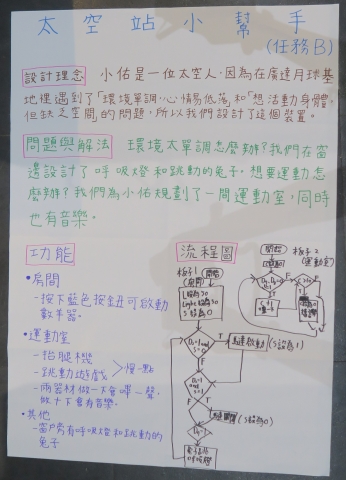 太空站小幫手
(任務B)
設計理念 小佑是一位太空人,因為在廣達月球基
地裡遇到了「環境單調,心情易低落」和「想活動身體,
但缺乏空間」的問題,所以我們設計了這個裝置。
問題與解法 環境太單調怎麼辦?我們在窗
邊設計了呼吸燈和跳動的兔子。想要運動怎
麼辦?我們為小佑規劃了一間運動室,同時
也有音樂。
功能
•房間
-按下藍色按鈕可啟動
數羊器。
•運動室
-抬腿機
-跳動遊戲
>慢一點
-兩器材做一下會嗶一聲,
做十下會有音樂。
•其他
-窗戶旁有呼吸燈和跳動的
兔子
流程圖
板子1
(房間)
開始
S設為0
T
F
(S設為1)
T
F
(S設為0)
板子2
(運動室)
開始
F
T